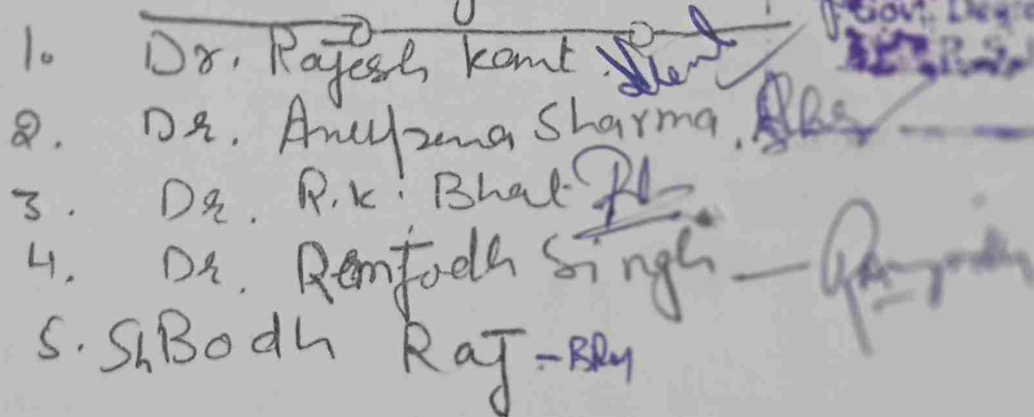 Govt. Deg
1. Dr. Rajesh kant
2. Dr. Anupama Sharma.
3. Dr. R.k. Bhat
4. Dr. Remjodh Singh —
5. Sh Bodh Raj - BRaj